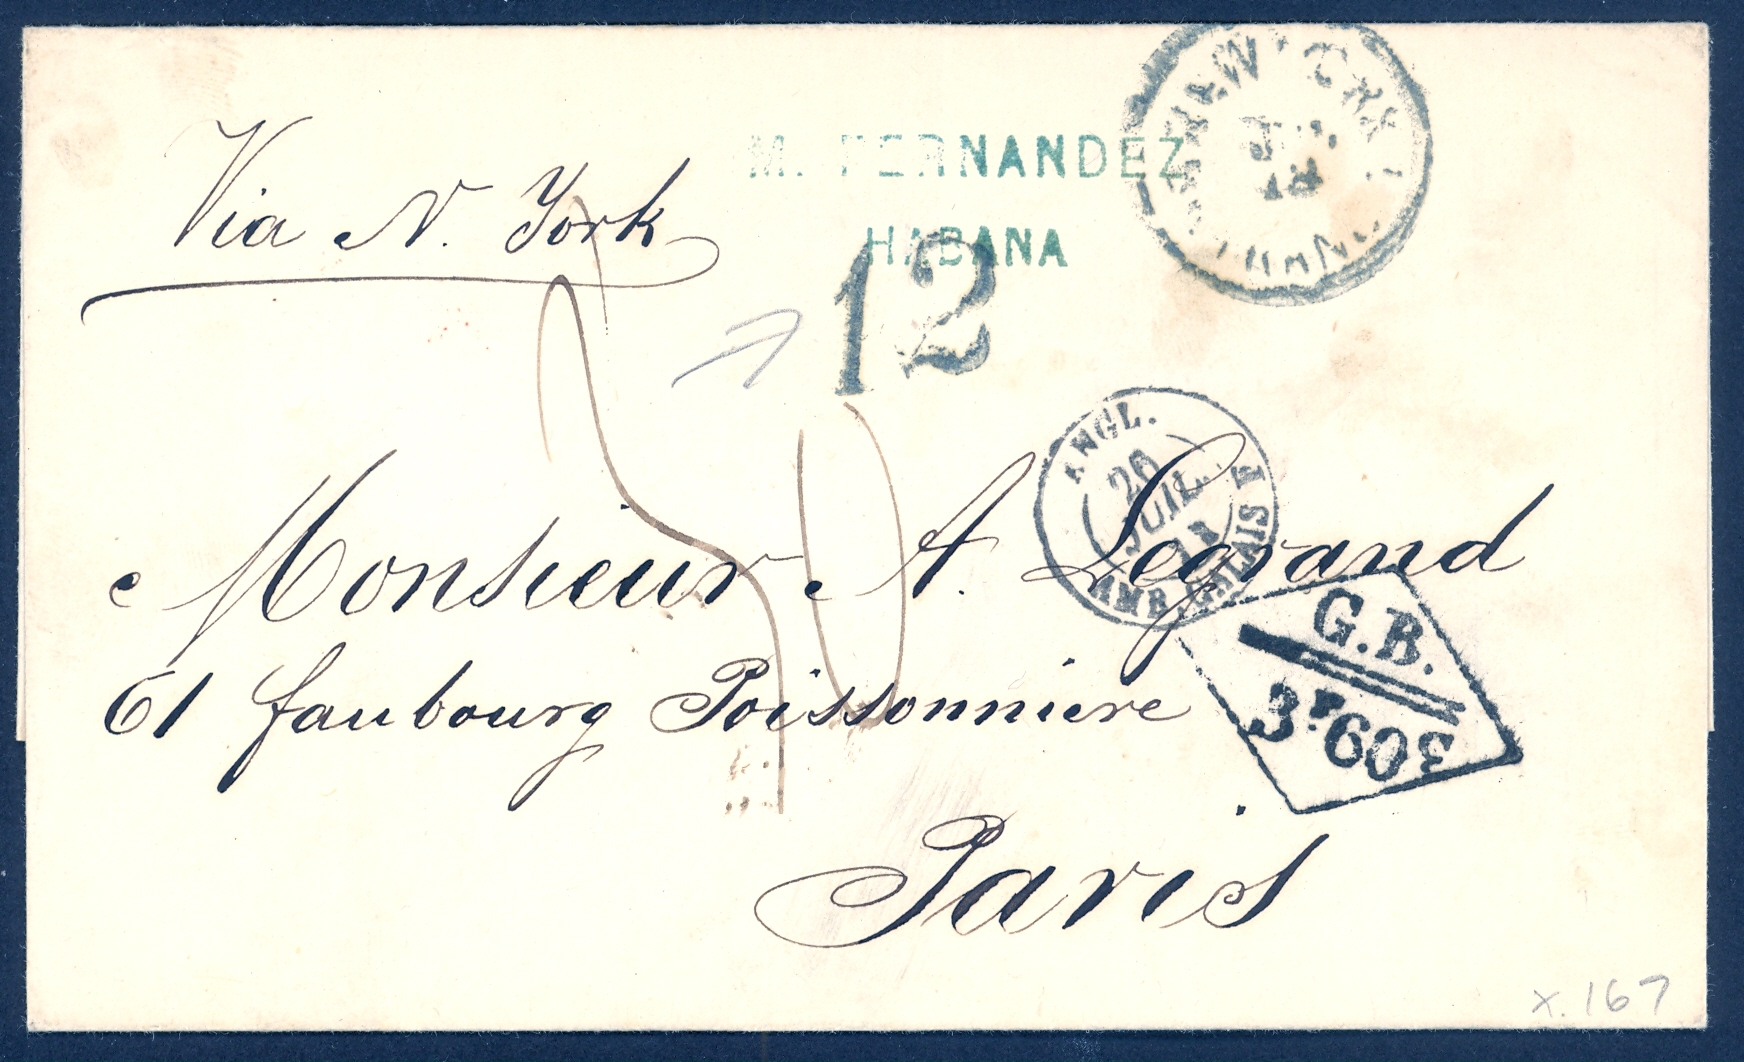 Via N. York
M. FERNANDEZ
HABANA
NEW YORK
12
ANGL.
20
JUIL.
71
AMB. CALAIS
Monsieur A. Legrand
G.B.
3F60c
61 faubourg Poissonniere
Paris
x.167